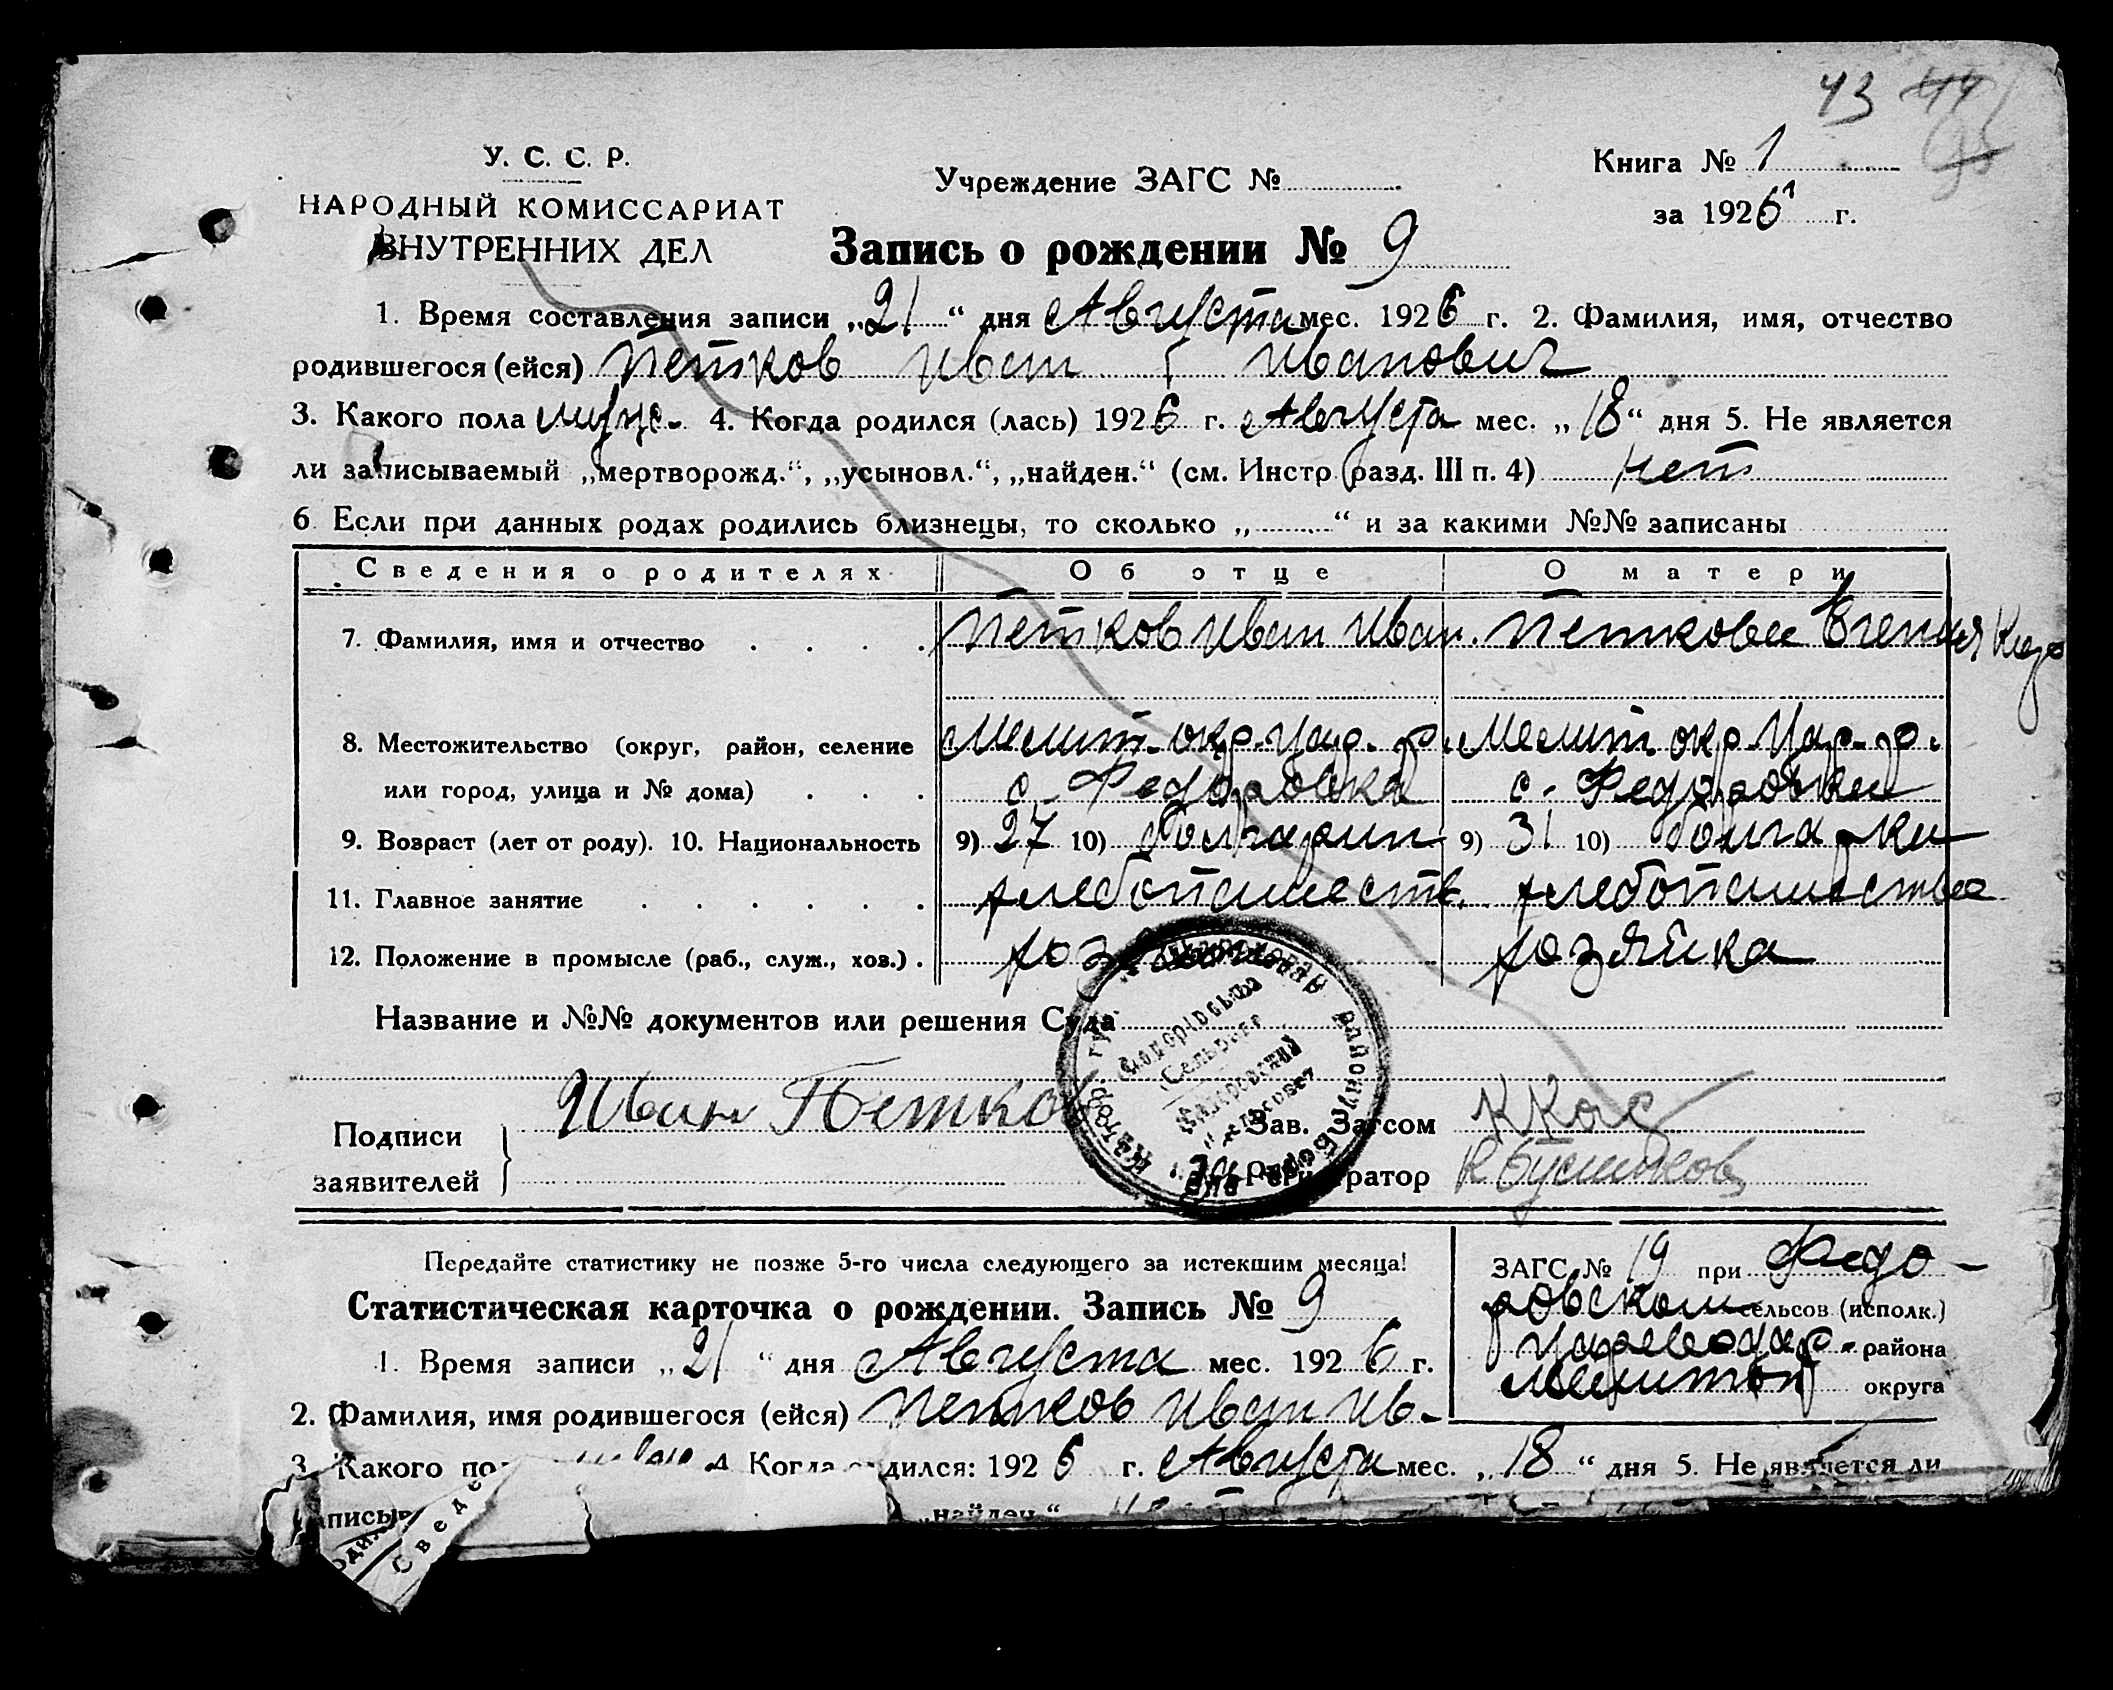 43 44
95
У. С. С. Р.
НАРОДНЫЙ КОМИССАРИАТ
ВНУТРЕННИХ ДЕЛ
Учреждение ЗАГС №
Книга № 1
за 1926 г.
Запись о рождении № 9
1. Время составления записи „21“ дня Августа мес. 1926 г. 2. Фамилия, имя, отчество
родившегося (ейся) Петков Иван Иванович
3. Какого пола муж. 4. Когда родился (лась) 1926 г. Августа мес. „18“ дня 5. Не является
ли записываемый „мертворожд.“, „усыновл.“, „найден.“ (см. Инстр. разд. III п. 4) нет
6 Если при данных родах родились близнецы, то сколько „ “ и за какими №№ записаны
Сведения о родителях Об отце О матери
7. Фамилия, имя и отчество Петков Иван Иван. Петкова
8. Местожительство (округ, район, селение Мелит. окр. Цар. р. Мелит окр. Цар. р.
или город, улица и № дома) с. Федоровка с. Федоровка
9. Возраст (лет от роду). 10. Национальность 9) 27 10) болгарин 9) 31 10) болгарка
11. Главное занятие хлебопашеств. хлебопашества
12. Положение в промысле (раб., служ., хоз.) хозяин хозяйка
Название и №№ документов или решения Суда
Подписи
заявителей
Иван Петков
Зав. Загсом
Регистратор
Федоровский
сельсовет
Передайте статистику не позже 5-го числа следующего за истекшим месяца!
Статистическая карточка о рождении. Запись № 9
ЗАГС № 19 при Федо-
ровском сельсов (исполк.)
района
Мелитоп округа
1. Время записи „21“ дня Августа мес. 1926 г.
2. Фамилия, имя родившегося (ейся) Петков Иван Ив.
3. Какого по 4 Когда одился: 1926 г. Августа мес. „18“ дня 5. Не является ли
аписыв „найден.“
Сведе